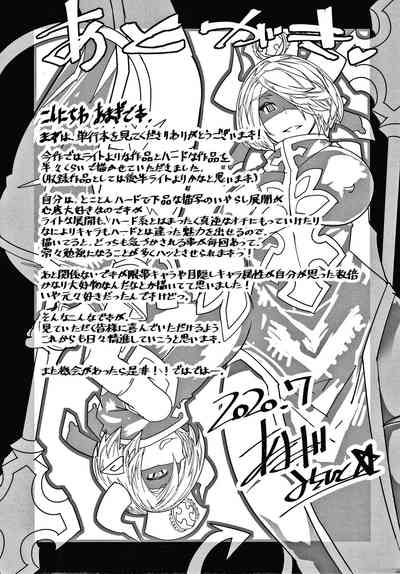 あとがき
こんにちわ あまぎです。
まずは、単行本を見てくださりありがとうございます!
今作ではライトよりな作品とハードな作品を
半々くらいで描かせていただきました。
(収録作品としては後半ライトよりかなと思います)
自分は、とことんハードで下品な描写のいやらしい展開が
大好きなのですが
ライトな展開も、ハード系とはまったく真逆なオチにもっていけたり
なによりキャラもハードとは違った魅力を出せるので、
描いてると、どっちも気づかされる事が毎回あって、
常々勉強になることが多くハッとさせられます!
あと関係ないですが眼帯キャラや目隠しキャラ属性が自分が思った数倍
かなり大好物なんだなとか描いてて思いました!
いや元々好きだったんですけどっ。
そんなこんなですが、
「見ていただく皆様に喜んでいただけるよう
これからも日々精進していこうと思います。
また機会があったら是非!!ではではー。
2020.7